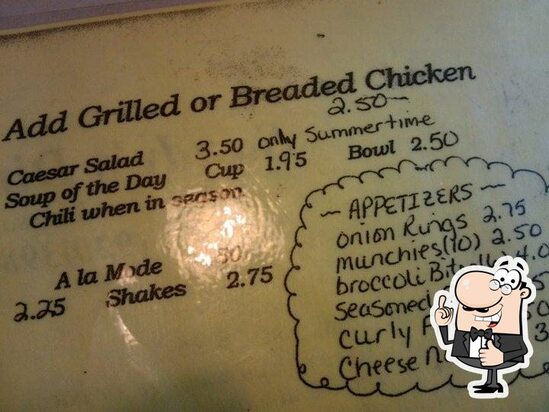 Add Grilled or Breaded Chicken
2.50
Caesar Salad 3.50 only Summertime
Soup of the Day Cup 1.95 Bowl 2.50
Chili when in season
A la Mode .50
2.25 Shakes 2.75
APPETIZERS
onion Rings 2.75
munchies (10) 2.50
broccoli
seasoned
curly
Cheese